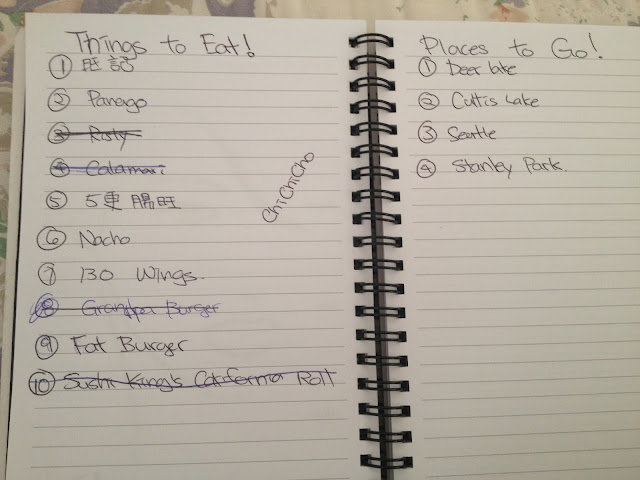 Things to Eat!
① 旺記
② Panago
③
④ Calamari
⑤ 5更腸旺
⑥ Nacho
⑦ 130 Wings.
⑧ Grandpa Burger
⑨ Fat Burger
⑩ Sushi King's California Roll
ChiChiCho
Places to Go!
① Deer lake
② Cultis Lake
③ Seattle
④ Stanley Park.